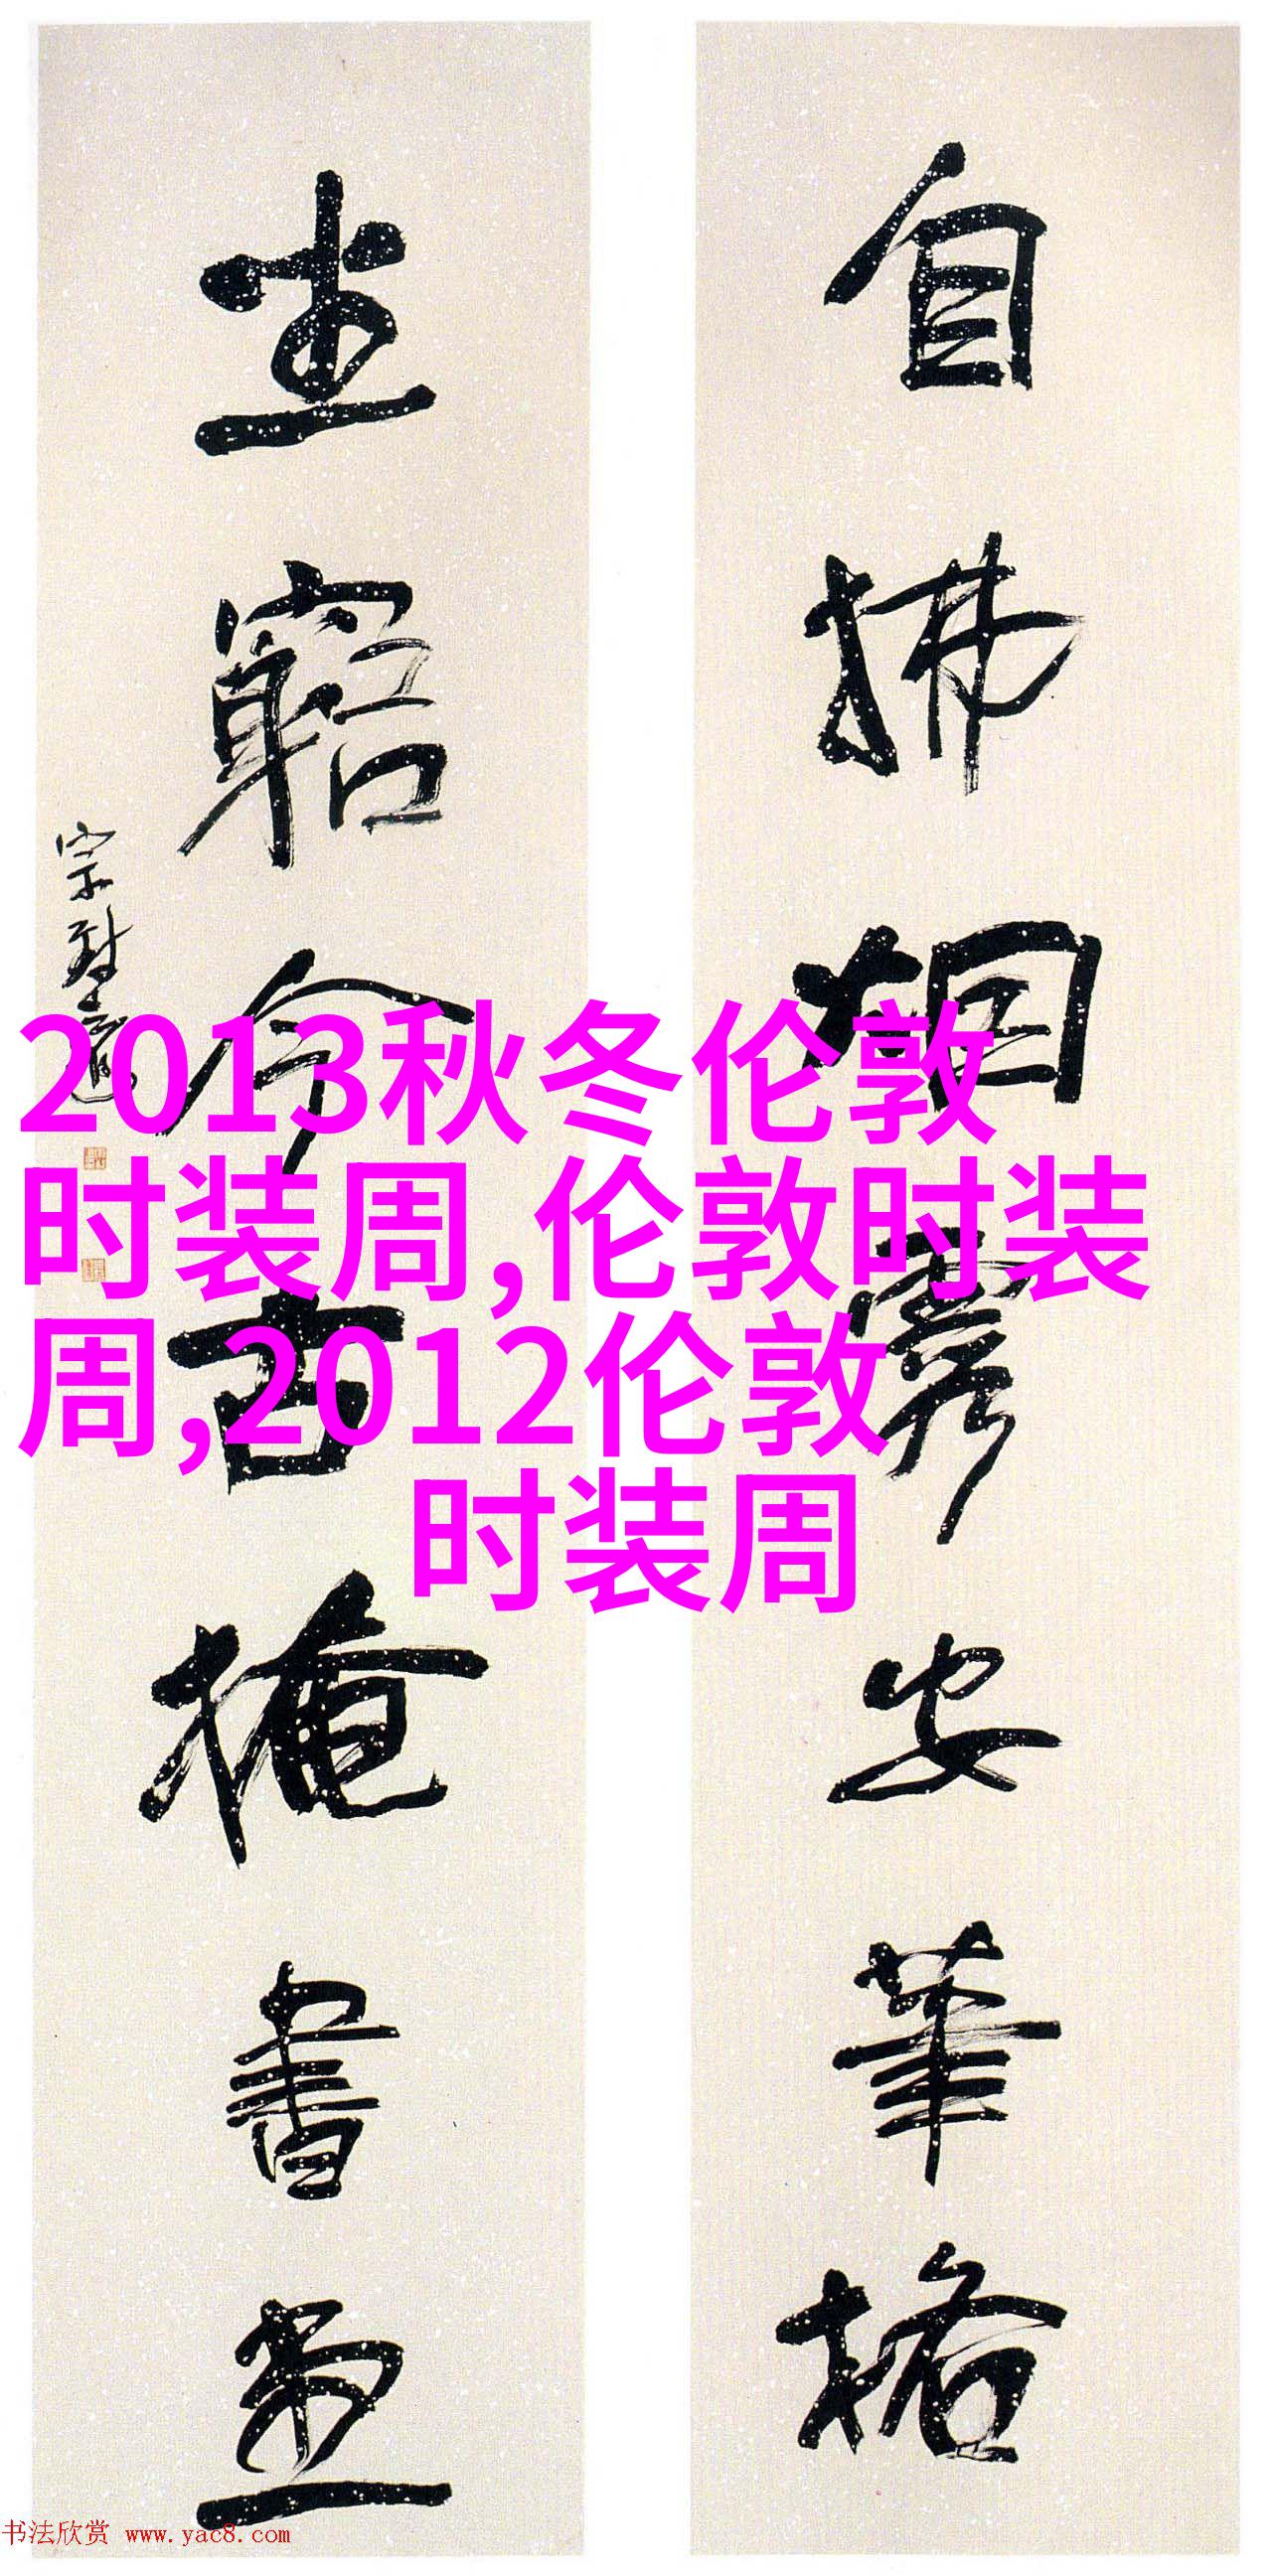 自拂烟霞安笔格
坐窮今古掩書堂
宗敬
2013秋冬伦敦
时装周,伦敦时装
周,2012伦敦
时装周
书法欣赏 www.yac8.com